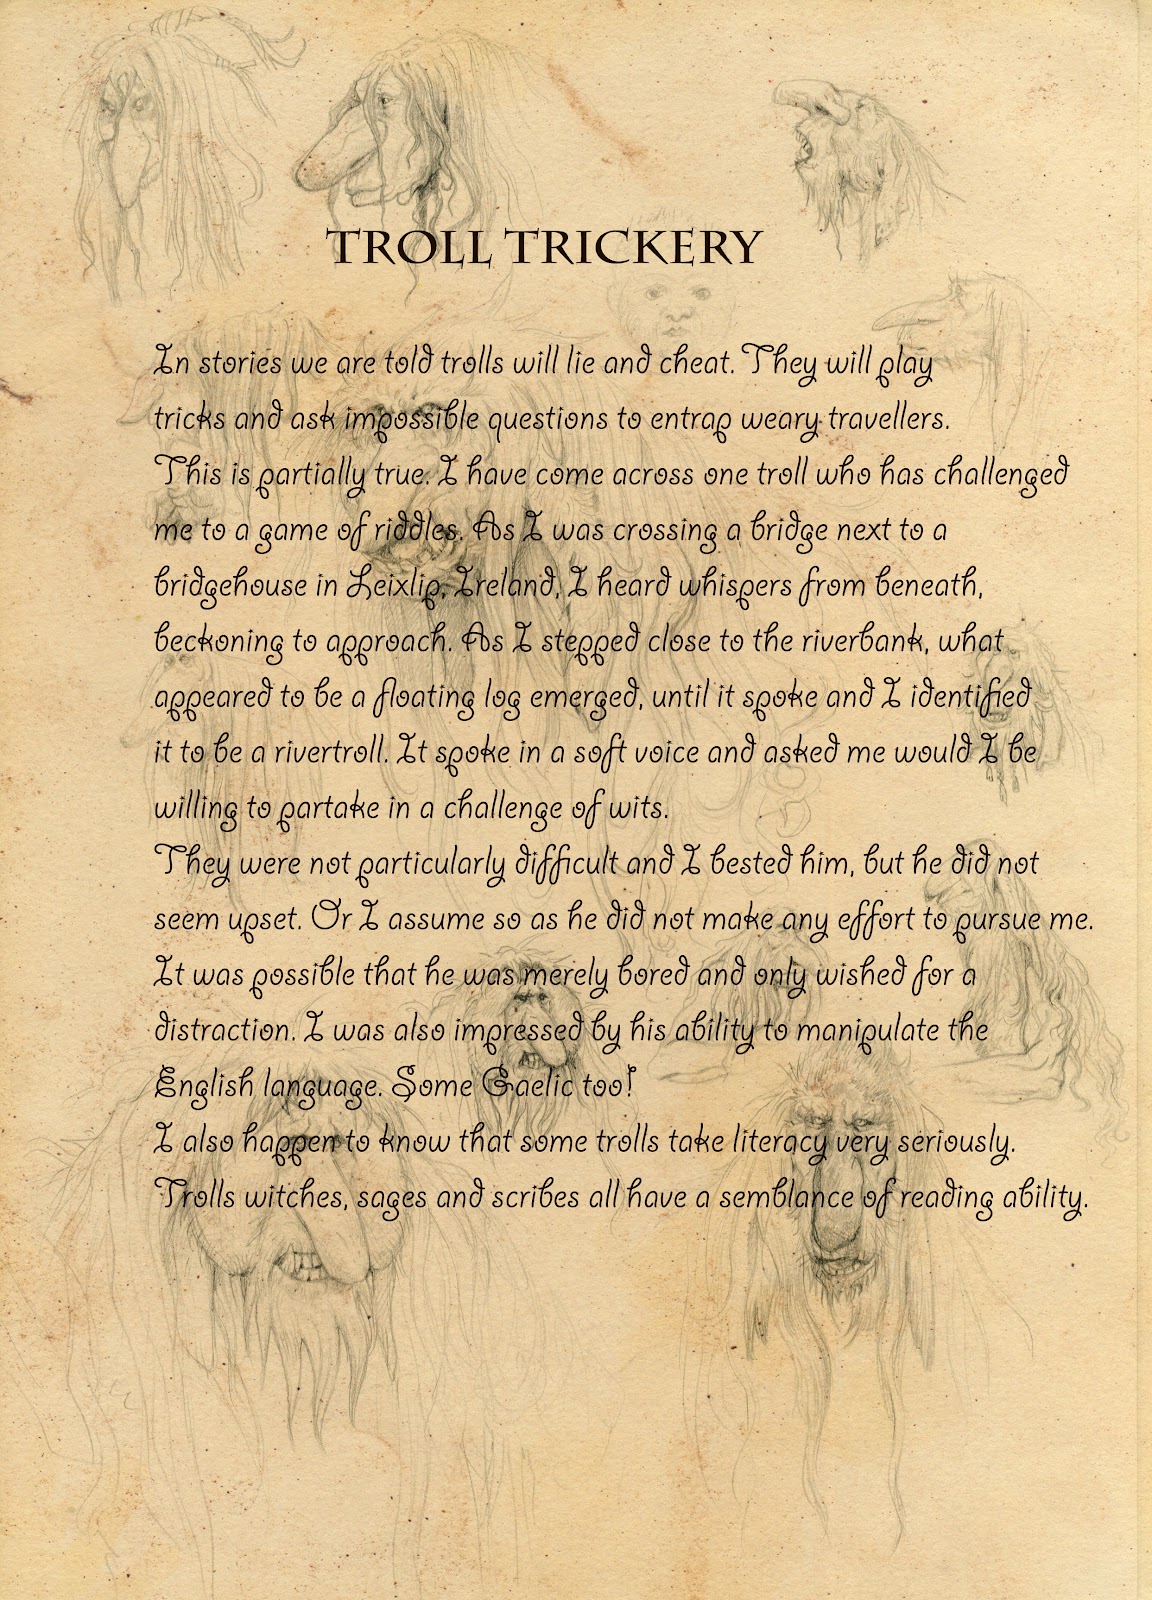 TROLL TRICKERY
In stories we are told trolls will lie and cheat. They will play
tricks and ask impossible questions to entrap weary travellers.
This is partially true. I have come across one troll who has challenged
me to a game of riddles. As I was crossing a bridge next to a
bridgehouse in Leixlip, Ireland, I heard whispers from beneath,
beckoning to approach. As I stepped close to the riverbank, what
appeared to be a floating log emerged, until it spoke and I identified
it to be a rivertroll. It spoke in a soft voice and asked me would I be
willing to partake in a challenge of wits.
They were not particularly difficult and I bested him, but he did not
seem upset. Or I assume so as he did not make any effort to pursue me.
It was possible that he was merely bored and only wished for a
distraction. I was also impressed by his ability to manipulate the
English language. Some Gaelic too!
I also happen to know that some trolls take literacy very seriously.
Trolls witches, sages and scribes all have a semblance of reading ability.